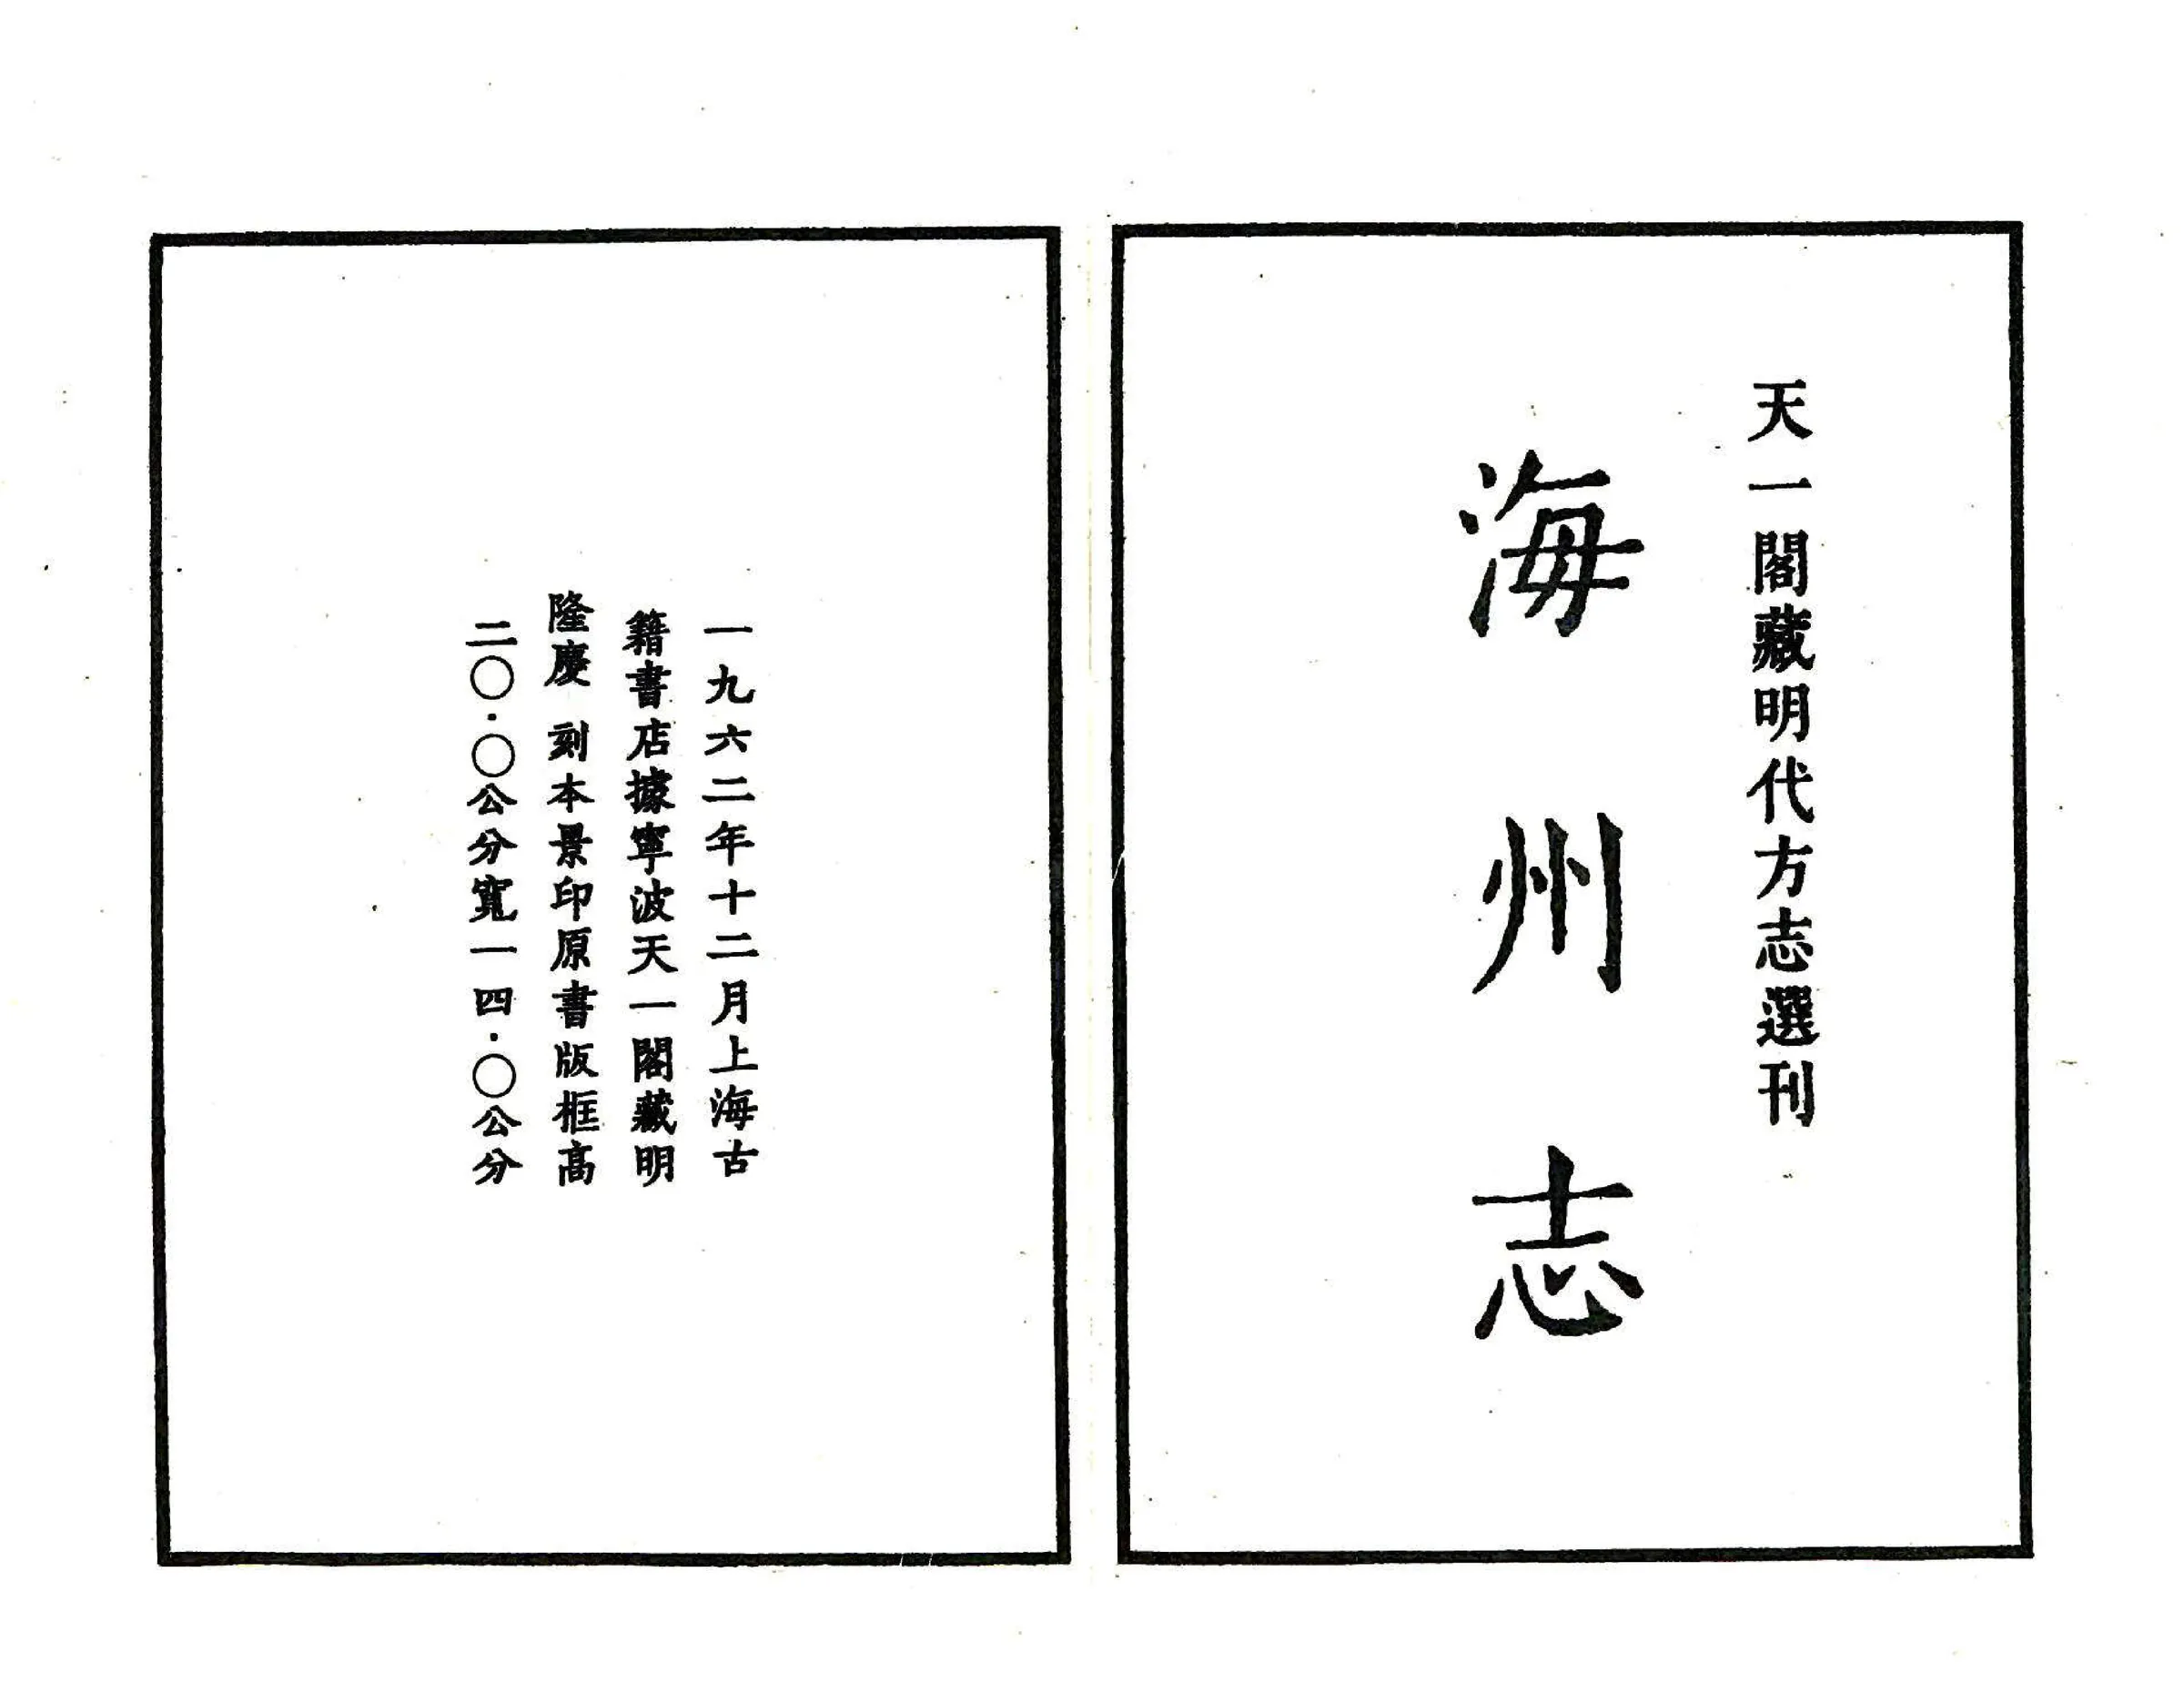 天一閣藏明代方志選刊
海州志
一九六二年十二月上海古
籍書店據寧波天一閣藏明
隆慶刻本景印原書版框高
二〇·〇公分寬一四·〇公分